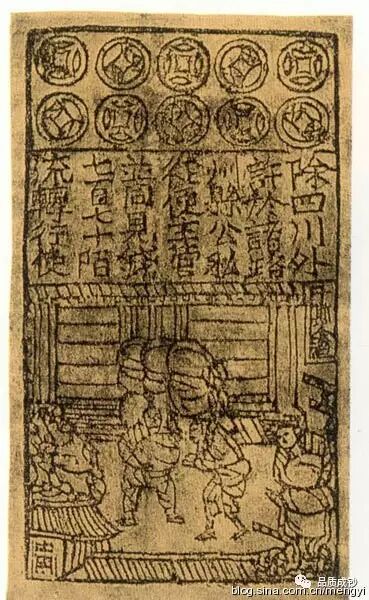 除四川外
許於諸路
州縣公私
從便主管
並同見錢
七百七十陌
流轉行使
品质成钞
blog.sina.com.cn/mengyi